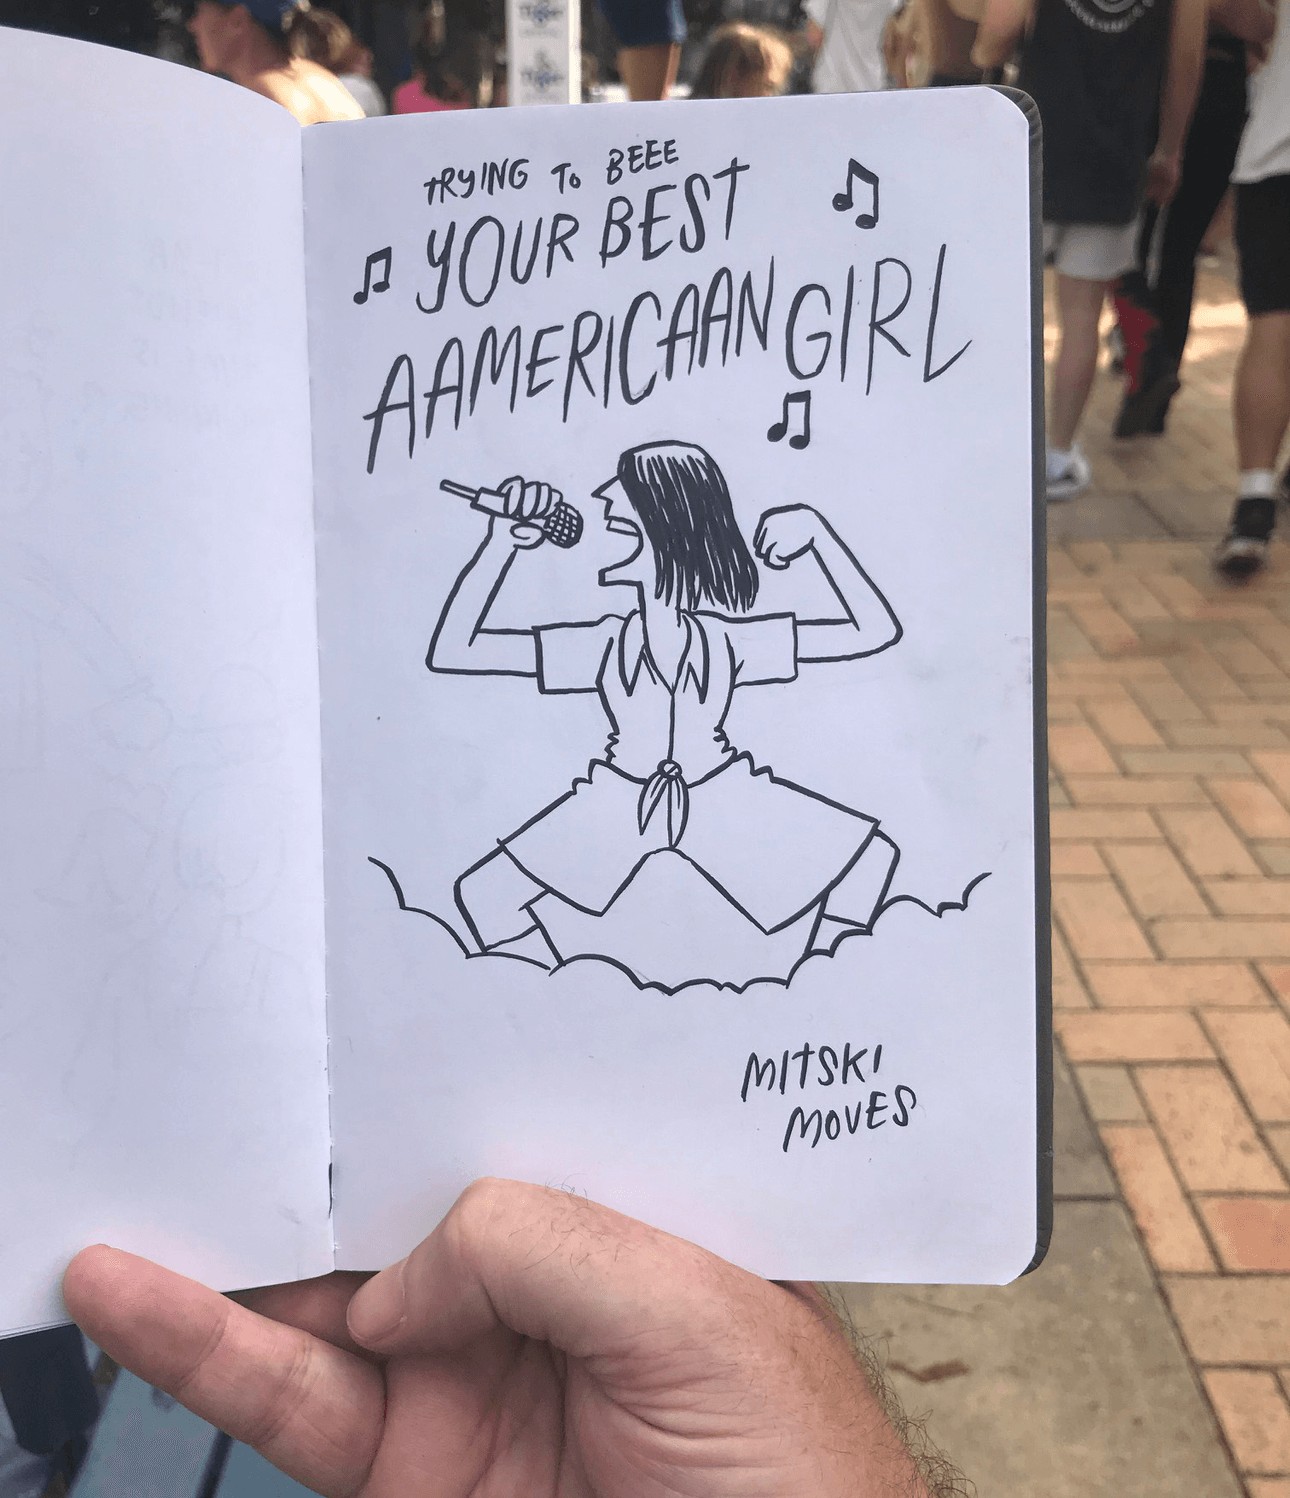 tRYING To BEEE
YOUR BEST
AAMERICAAN GIRL
MITSKI
MOVES